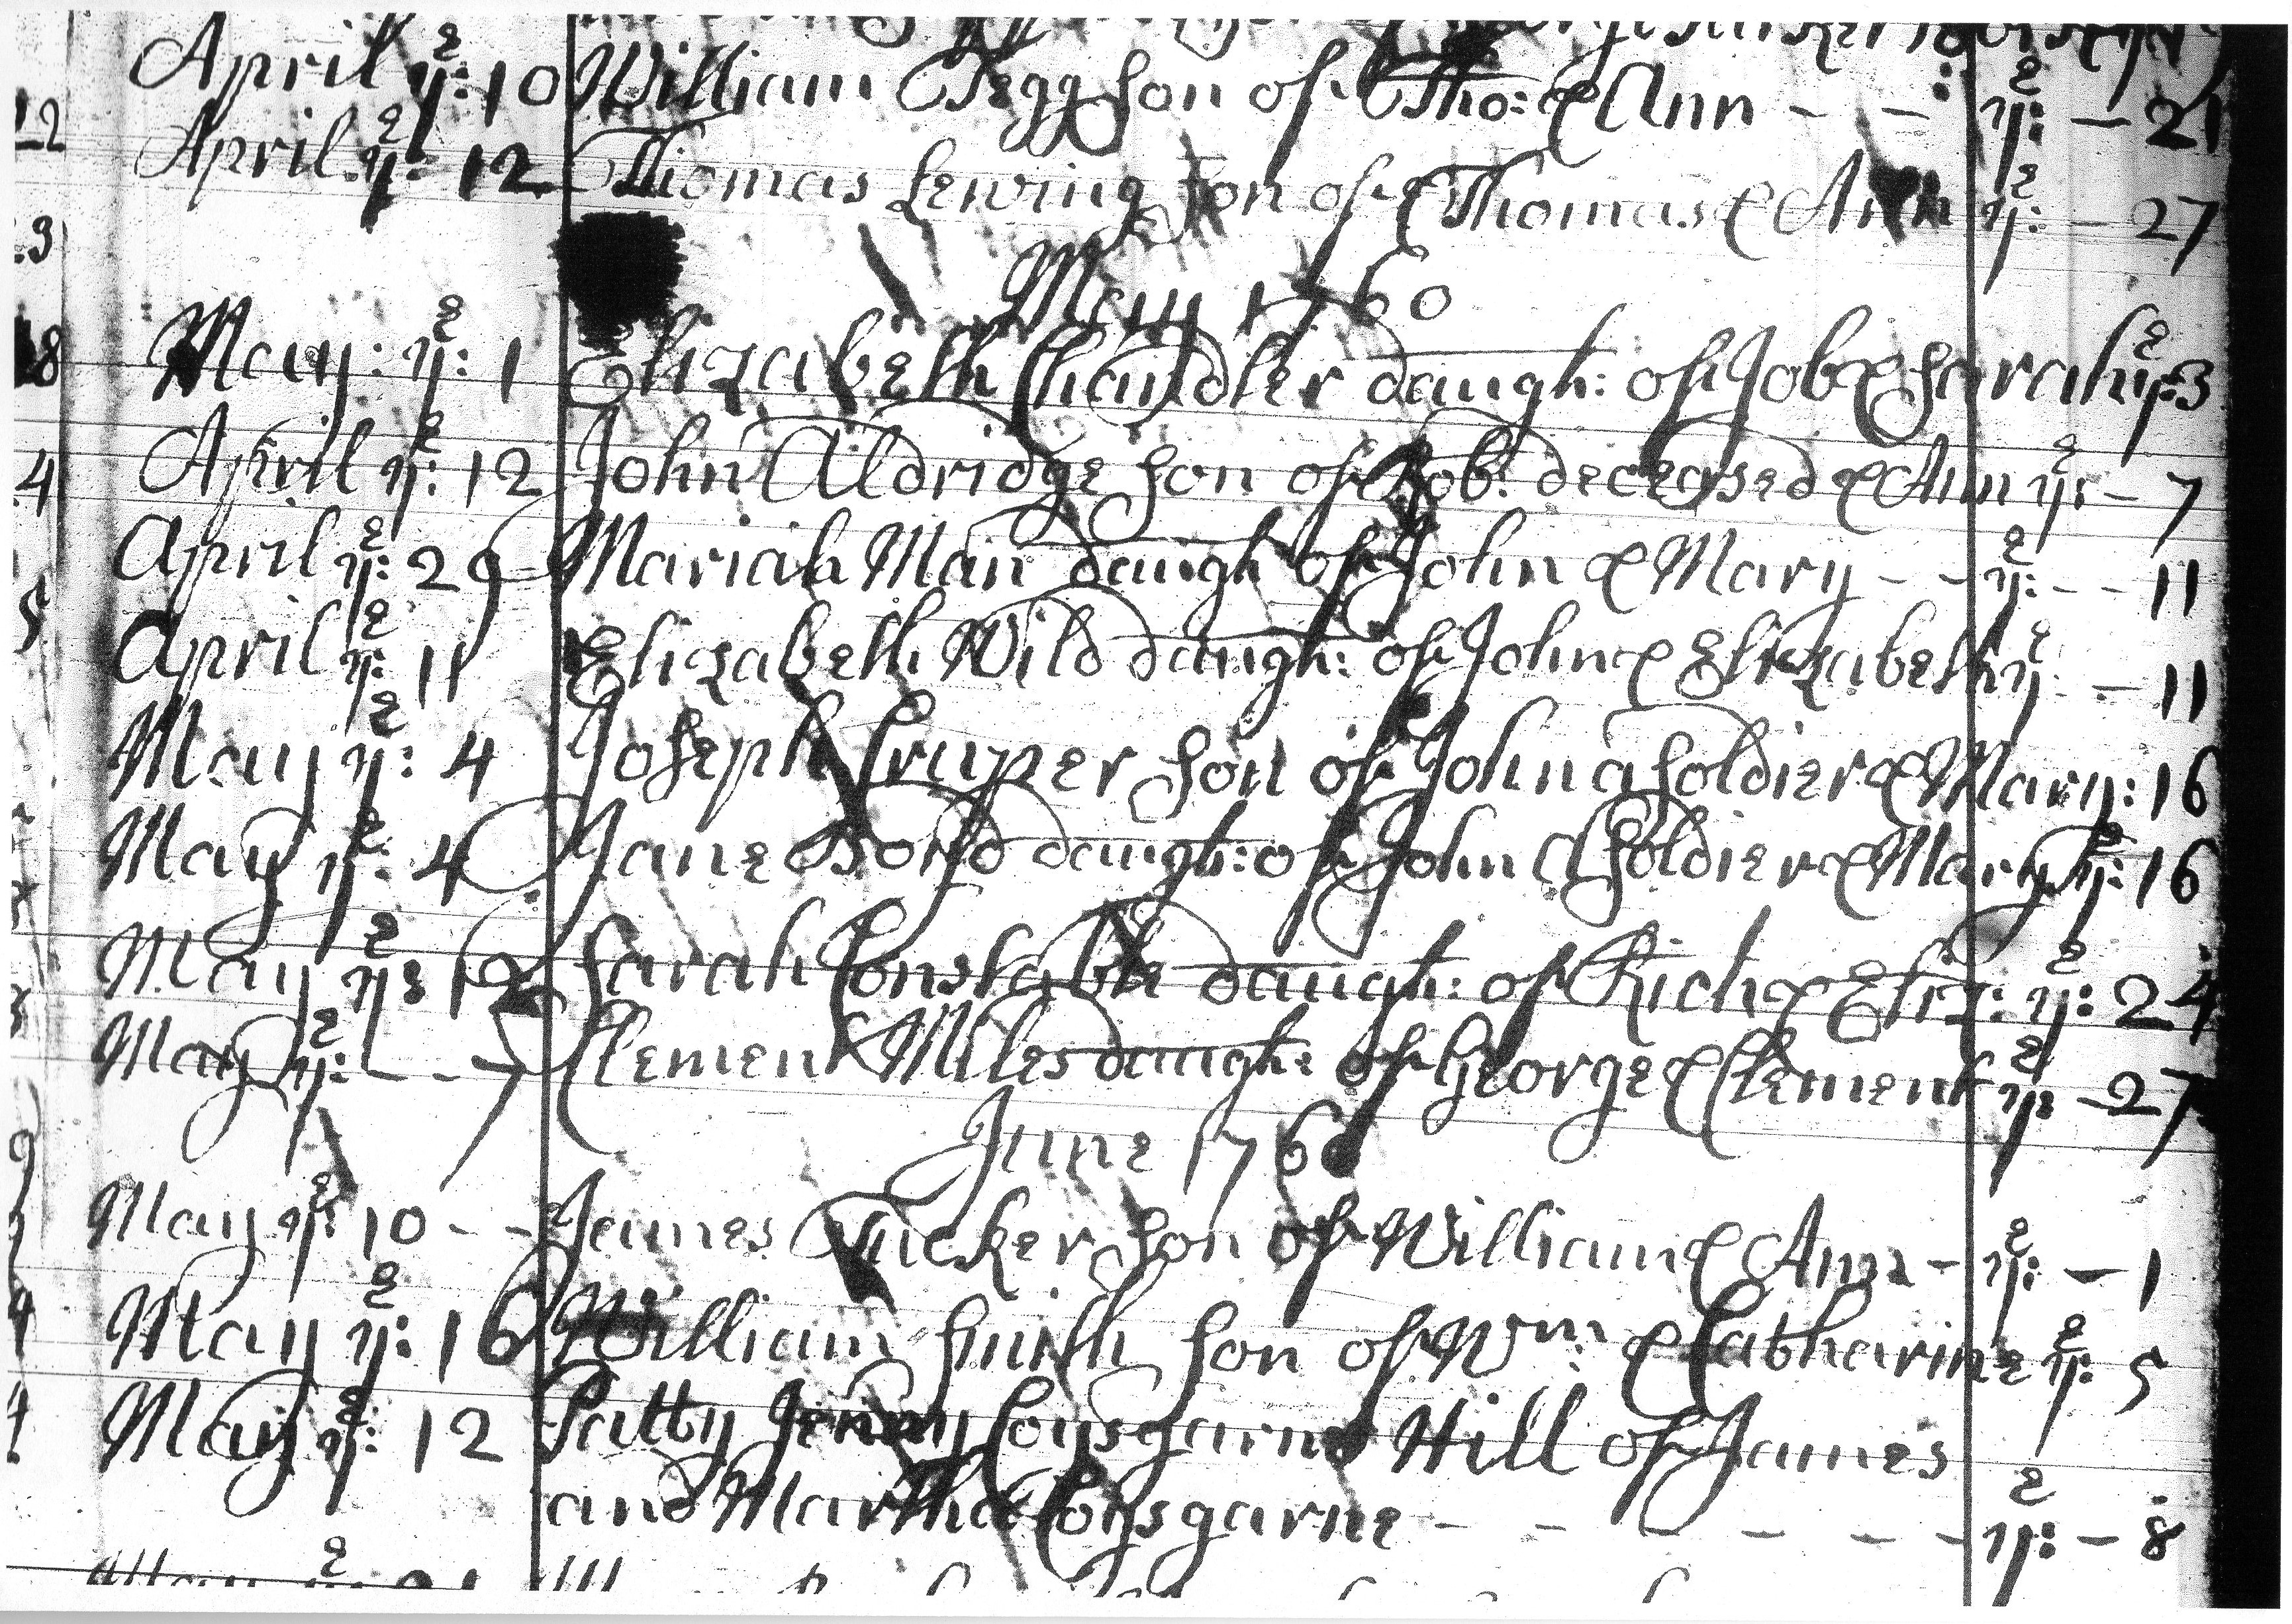 April yͤ: 10 William Tegg son of Tho: & Ann - - yͤ: - 21
April yͤ: 12 Thomas Lewing son of Thomas & Ann yͤ: - 27
May 1760
May: yͤ: 1 Elizabeth Chandler daugh: of Job & Sarah yͤ: 3
April yͤ: 12 John Aldridge son of Rob: deceased & Ann yͤ: - 7
April yͤ: 29 Mariah Man daugh of John & Mary - - yͤ: - - 11
April yͤ: 11 Elizabeth Wild daugh: of John & Elizabeth yͤ: - 11
May yͤ: 4 Joseph Cruper son of John a soldier & Mary: 16
May yͤ: 4 Jane daugh: of John a soldier & Mary yͤ: 16
May yͤ: 12 Sarah Constable daugh: of Rich & Eliz: yͤ: 24
May yͤ: - - 7 Clement Miles daugh: of George & Clement yͤ: - 27
June 1760
May yͤ: 10 - - James Tucker son of William & Ann - yͤ: - 1
May yͤ: 16 William Smith son of Wm: & Catharine yͤ: 5
May yͤ: 12 Patty Jenny Coysgarne Hill of James
and Martha Coysgarne - - - - - - yͤ: - 8